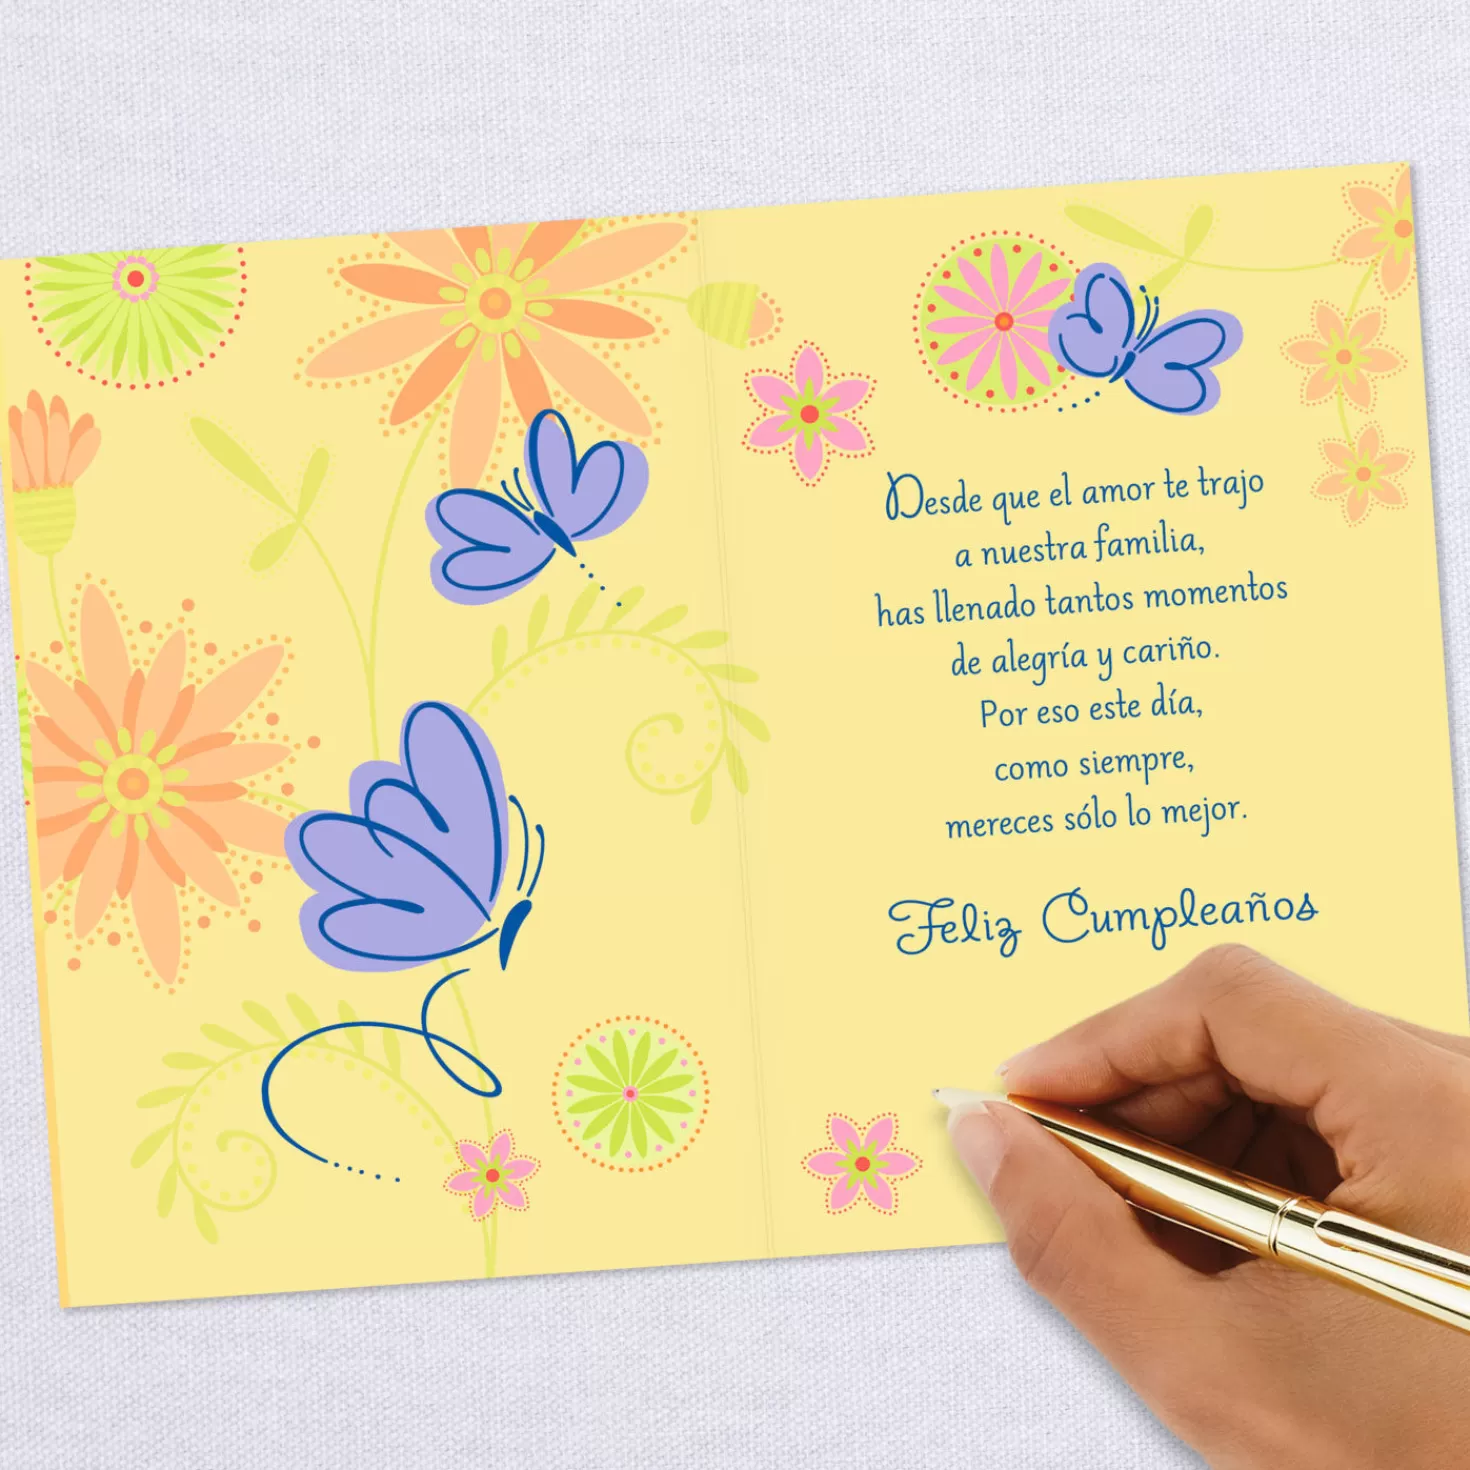 Desde que el amor te trajo
a nuestra familia,
has llenado tantos momentos
de alegría y cariño.
Por eso este día,
como siempre,
mereces sólo lo mejor.
Feliz Cumpleaños